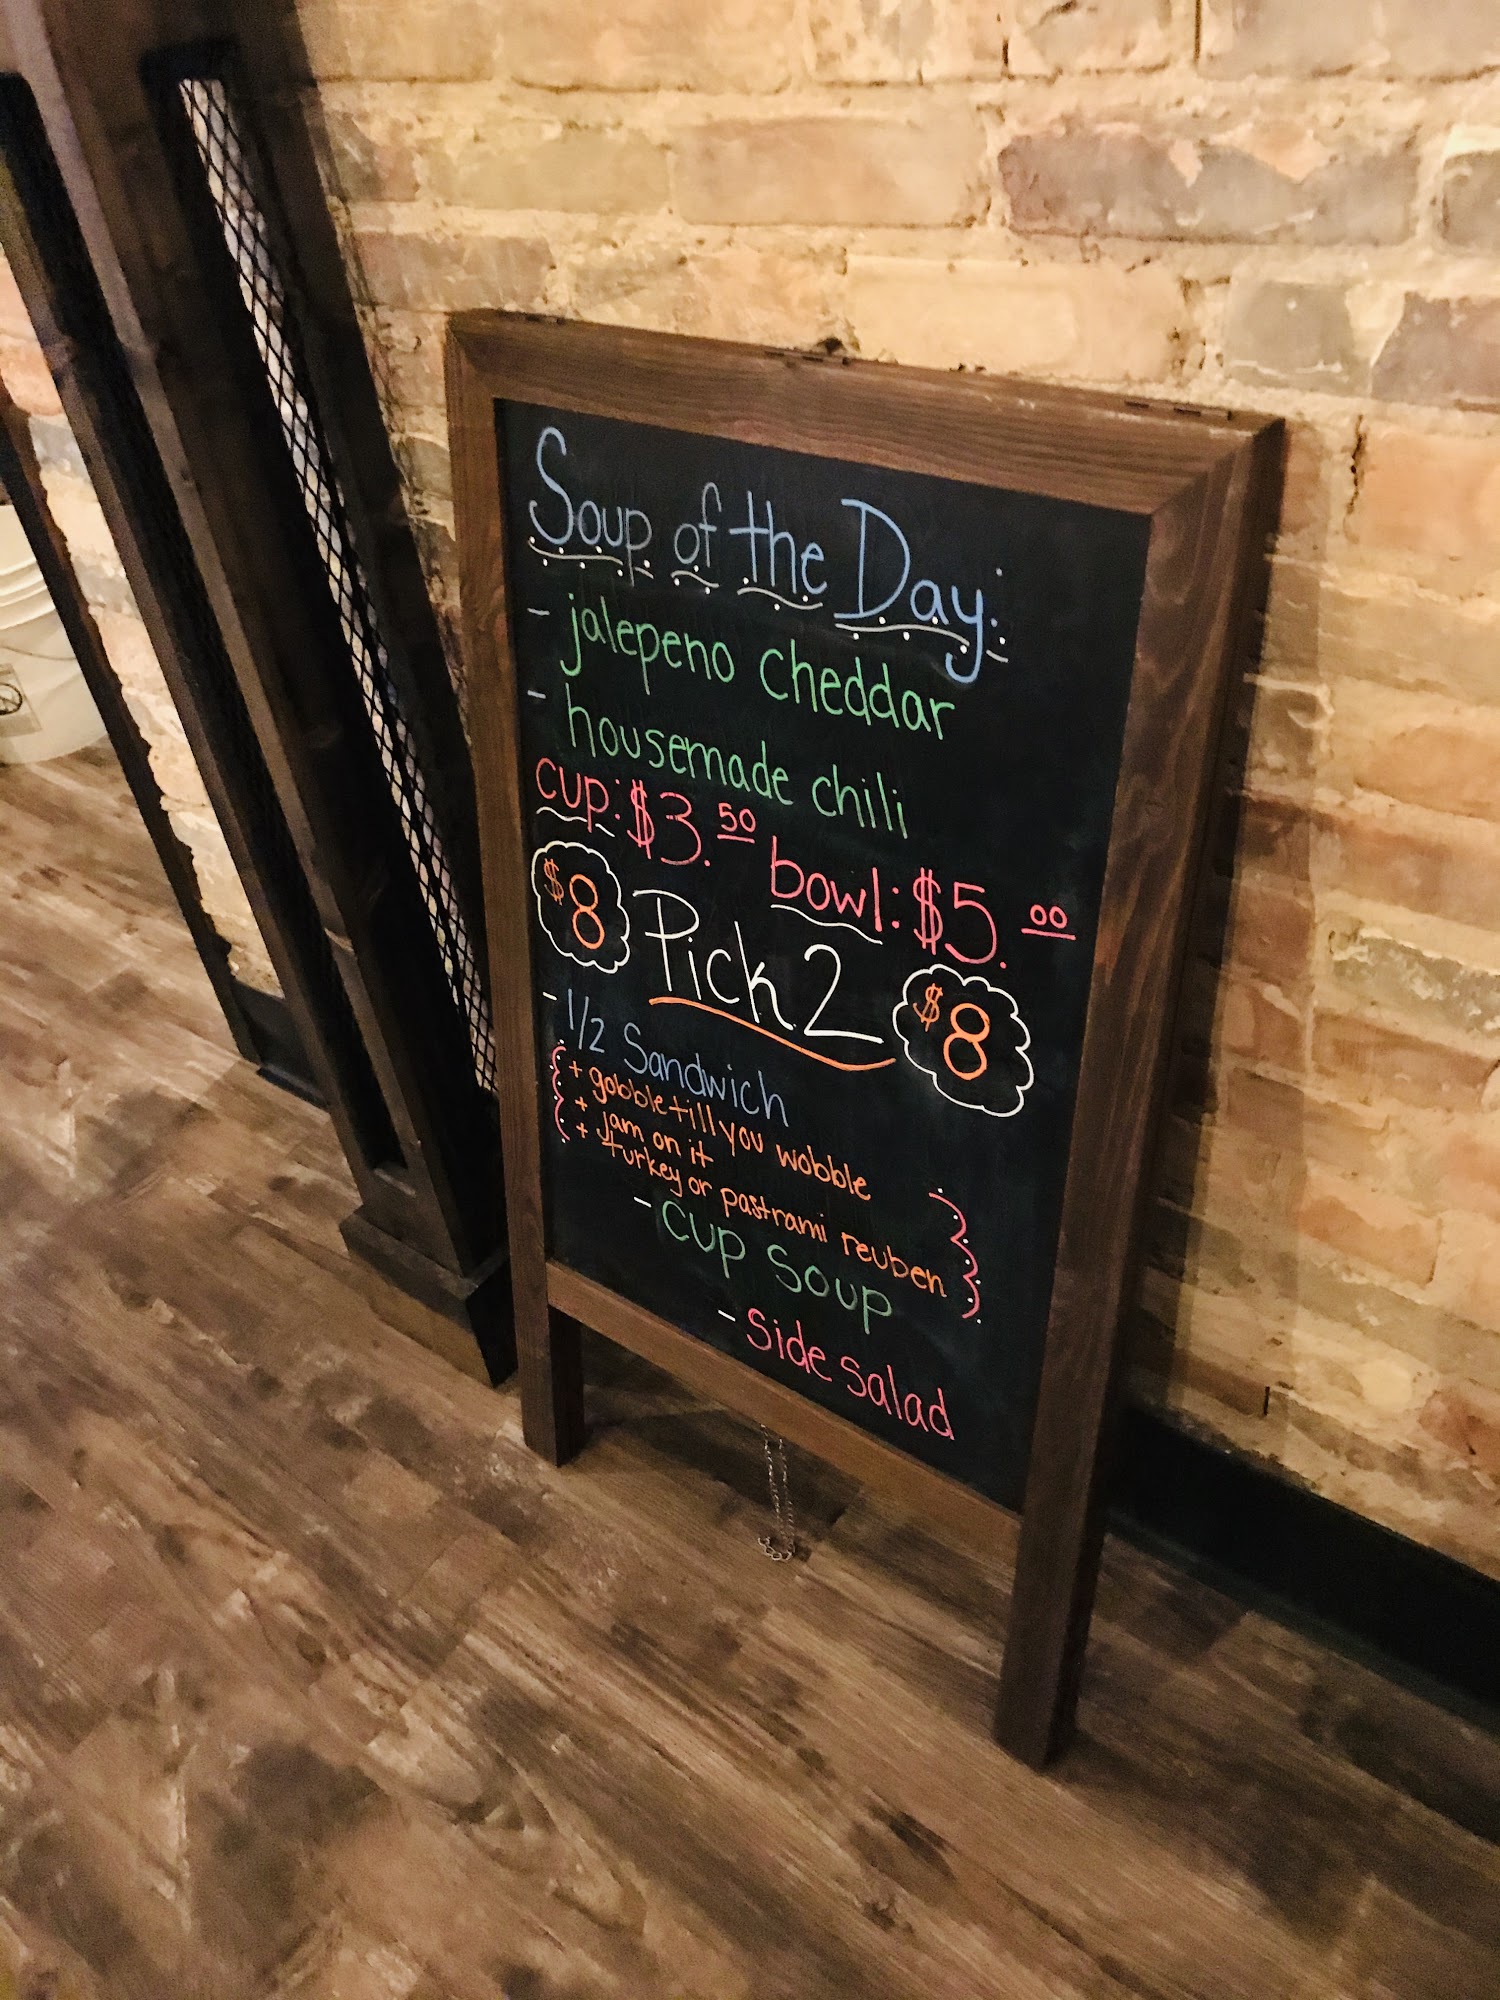 Soup of the Day:
- jalepeno cheddar
- housemade chili
cup: $3.50 bowl: $5.00
$8 Pick 2 $8
- 1/2 Sandwich
+ gobble till you wobble
+ jam on it
+ turkey or pastrami reuben
- cup soup
- side salad